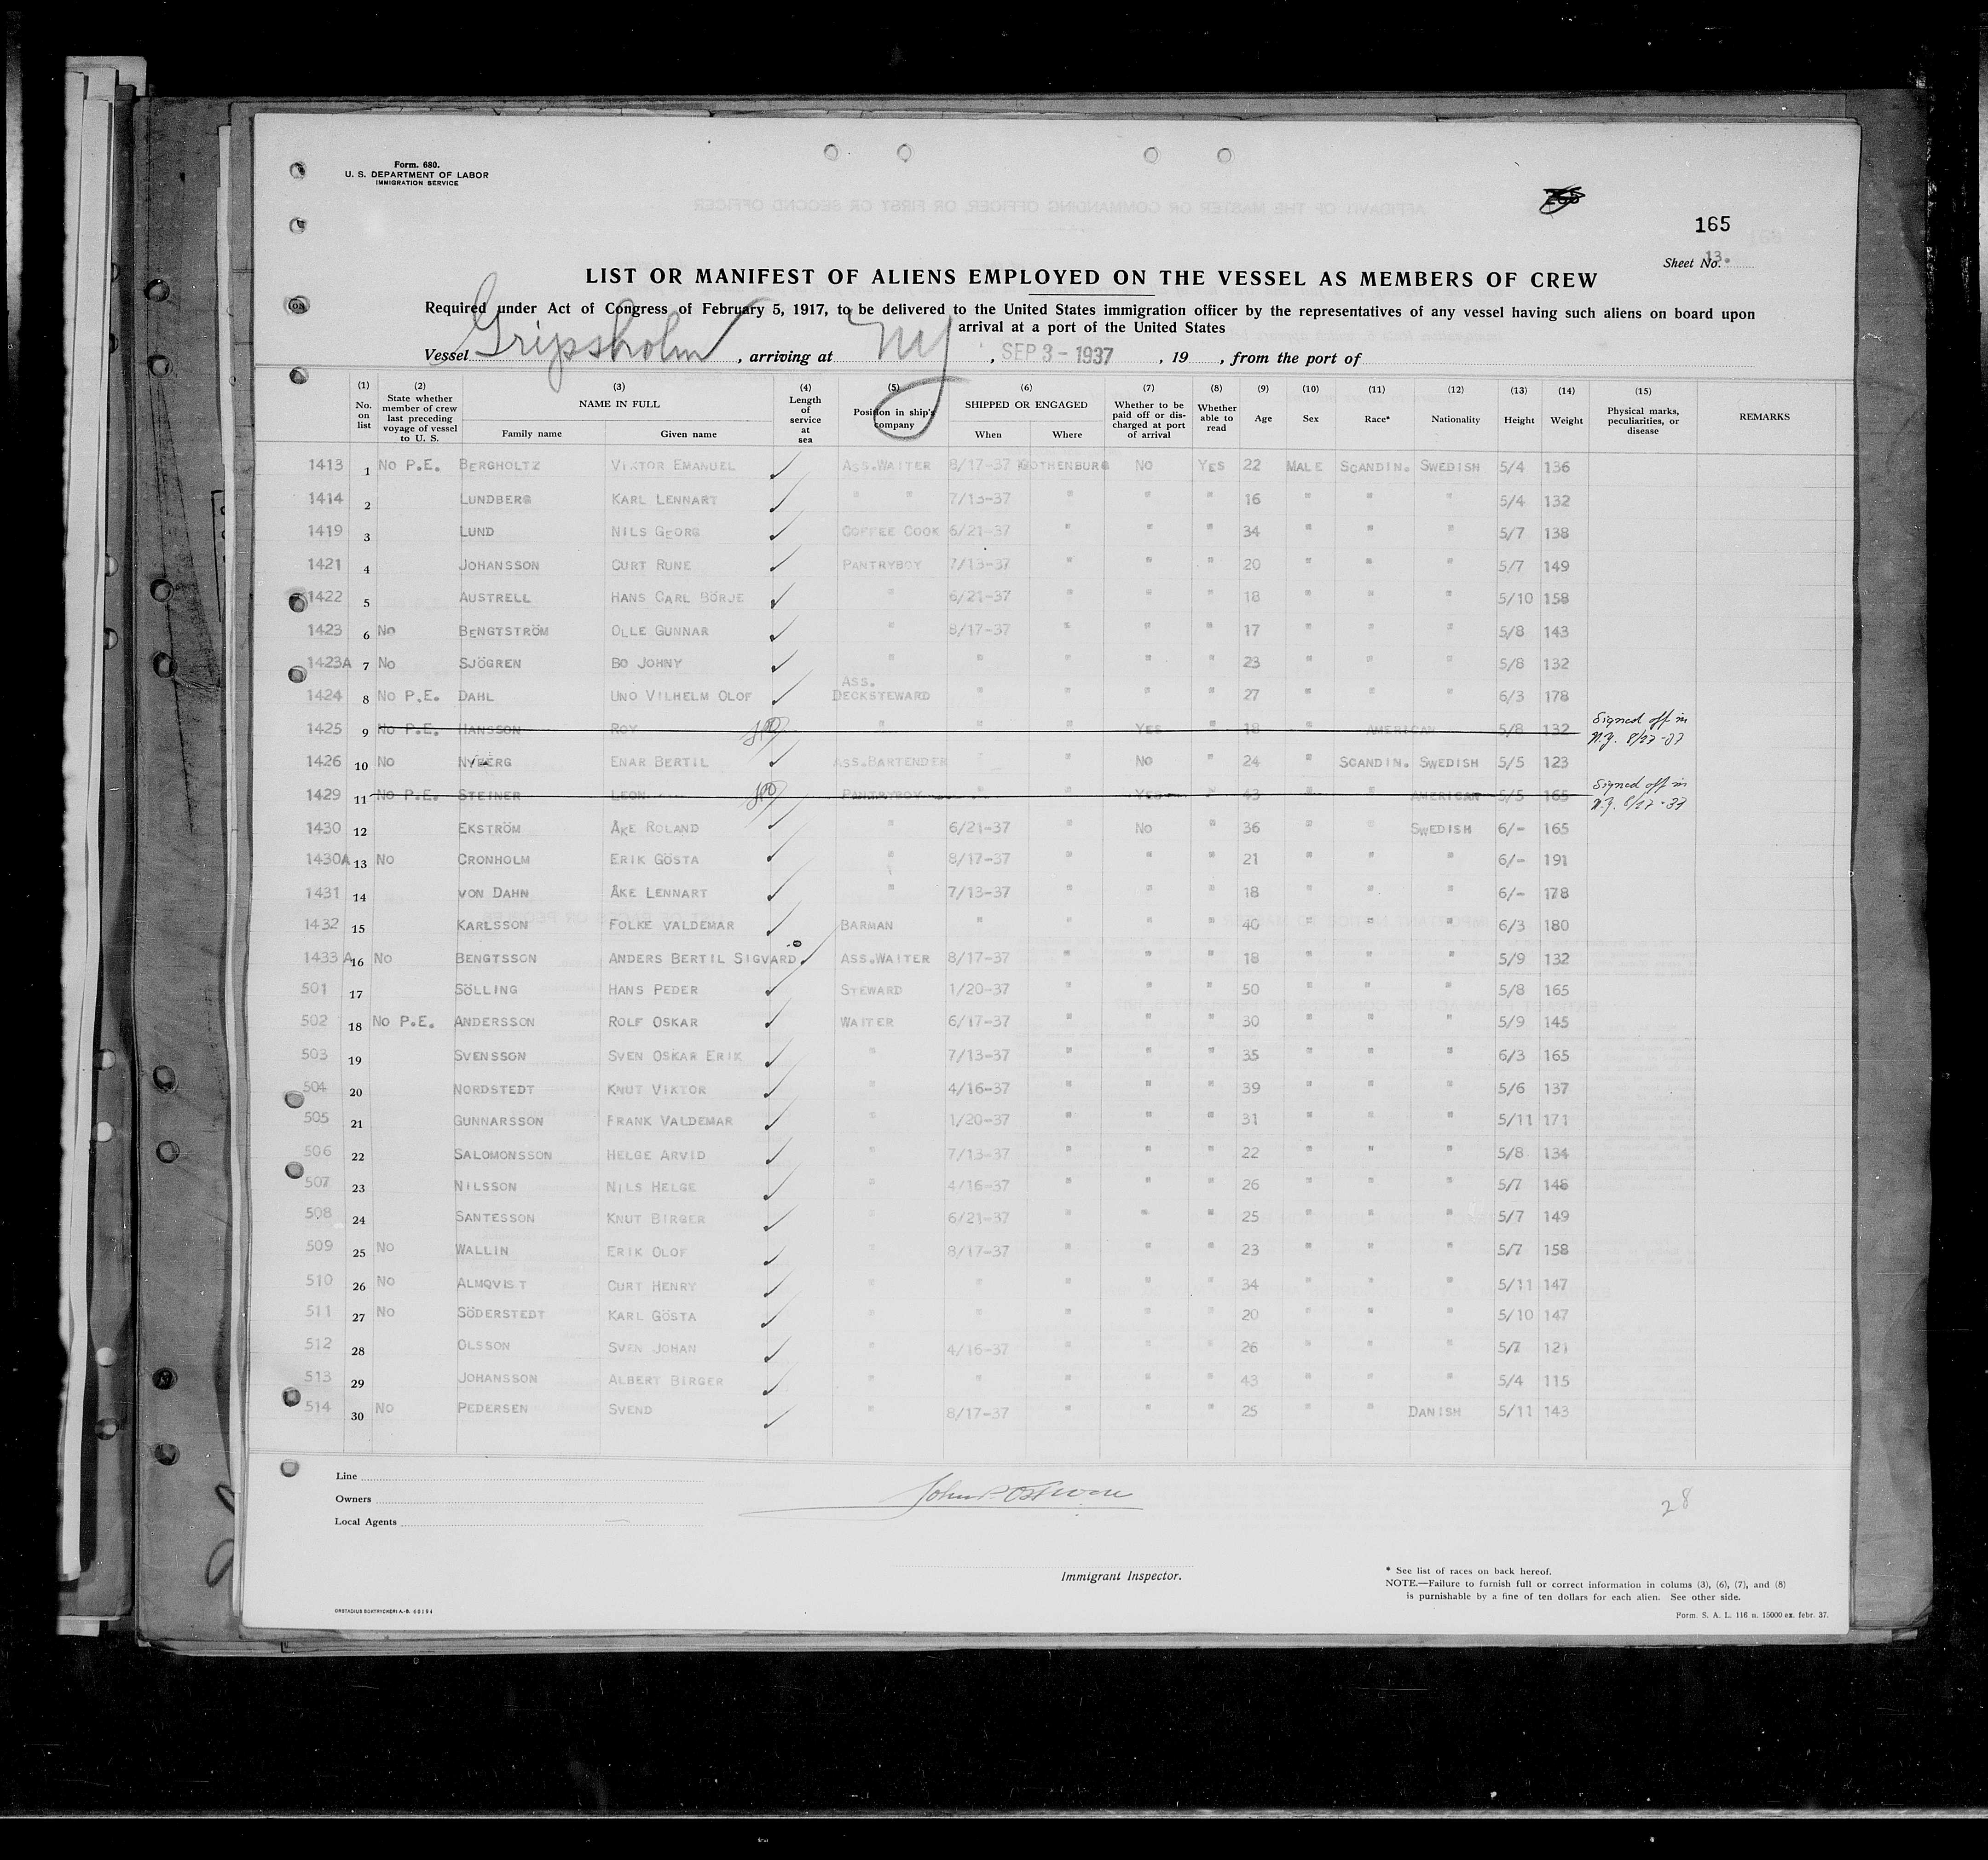 Form. 680.
U. S. DEPARTMENT OF LABOR
IMMIGRATION SERVICE
165
Sheet No. 13.
LIST OR MANIFEST OF ALIENS EMPLOYED ON THE VESSEL AS MEMBERS OF CREW
Required under Act of Congress of February 5, 1917, to be delivered to the United States immigration officer by the representatives of any vessel having such aliens on board upon
arrival at a port of the United States
Vessel Gripsholm , arriving at NY , SEP 3 - 1937 , 19 , from the port of
(1) No. on list (2) State whether member of crew last preceding voyage of vessel to U. S. (3) NAME IN FULL Family name Given name (4) Length of service at sea (5) Position in ship's company (6) SHIPPED OR ENGAGED When Where (7) Whether to be paid off or discharged at port of arrival (8) Whether able to read (9) Age (10) Sex (11) Race* (12) Nationality (13) Height (14) Weight (15) Physical marks, peculiarities, or disease REMARKS
1413 1 No P.E. BERGHOLTZ VIKTOR EMANUEL ASS.WAITER 8/17-37 GOTHENBURG NO YES 22 MALE SCANDIN. SWEDISH 5/4 136
1414 2 LUNDBERG KARL LENNART " " 7/13-37 " " " 16 " " " 5/4 132
1419 3 LUND NILS GEORG COFFEE COOK 6/21-37 " " " 34 " " " 5/7 138
1421 4 JOHANSSON CURT RUNE PANTRYBOY 7/13-37 " " " 20 " " " 5/7 149
1422 5 AUSTRELL HANS CARL BÖRJE " 6/21-37 " " " 18 " " " 5/10 158
1423 6 No BENGTSTRÖM OLLE GUNNAR " 8/17-37 " " " 17 " " " 5/8 143
1423A 7 No SJÖGREN BO JOHNY " " " " " 23 " " " 5/8 132
1424 8 No P.E. DAHL UNO VILHELM OLOF ASS. DECKSTEWARD " " " " 27 " " " 6/3 178
1425 9 No P.E. HANSSON ROY " " " YES " 18 " AMERICAN 5/8 132 Signed off in N.Y. 8/27-37
1426 10 No NYBERG ENAR BERTIL ASS.BARTENDER " " NO " 24 " SCANDIN. SWEDISH 5/5 123
1429 11 No P.E. STEINER LEON PANTRYBOY " " YES " 43 " " AMERICAN 5/5 165 Signed off in N.Y. 8/27-37
1430 12 EKSTRÖM ÅKE ROLAND " 6/21-37 " NO " 36 " " SWEDISH 6/- 165
1430A 13 No CRONHOLM ERIK GÖSTA " 8/17-37 " " " 21 " " " 6/- 191
1431 14 VON DAHN ÅKE LENNART " 7/13-37 " " " 18 " " " 6/- 178
1432 15 KARLSSON FOLKE VALDEMAR BARMAN " " " " 40 " " " 6/3 180
1433 A 16 No BENGTSSON ANDERS BERTIL SIGVARD ASS.WAITER 8/17-37 " " " 18 " " " 5/9 132
501 17 SÖLLING HANS PEDER STEWARD 1/20-37 " " " 50 " " " 5/8 165
502 18 No P.E. ANDERSSON ROLF OSKAR WAITER 6/17-37 " " " 30 " " " 5/9 145
503 19 SVENSSON SVEN OSKAR ERIK " 7/13-37 " " " 35 " " " 6/3 165
504 20 NORDSTEDT KNUT VIKTOR " 4/16-37 " " " 39 " " " 5/6 137
505 21 GUNNARSSON FRANK VALDEMAR " 1/20-37 " " " 31 " " " 5/11 171
506 22 SALOMONSSON HELGE ARVID " 7/13-37 " " " 22 " " " 5/8 134
507 23 NILSSON NILS HELGE " 4/16-37 " " " 26 " " " 5/7 145
508 24 SANTESSON KNUT BIRGER " 6/21-37 " " " 25 " " " 5/7 149
509 25 No WALLIN ERIK OLOF " 8/17-37 " " " 23 " " " 5/7 158
510 26 No ALMQVIST CURT HENRY " " " " " 34 " " " 5/11 147
511 27 No SÖDERSTEDT KARL GÖSTA " " " " " 20 " " " 5/10 147
512 28 OLSSON SVEN JOHAN " 4/16-37 " " " 26 " " " 5/7 121
513 29 JOHANSSON ALBERT BIRGER " " " " " 43 " " " 5/4 115
514 30 No PEDERSEN SVEND " 8/17-37 " " " 25 " " DANISH 5/11 143
Line
Owners
Local Agents
28
Immigrant Inspector.
* See list of races on back hereof.
NOTE.—Failure to furnish full or correct information in colums (3), (6), (7), and (8)
is purnishable by a fine of ten dollars for each alien. See other side.
Form. S. A. L. 116 n. 15000 ex. febr. 37.